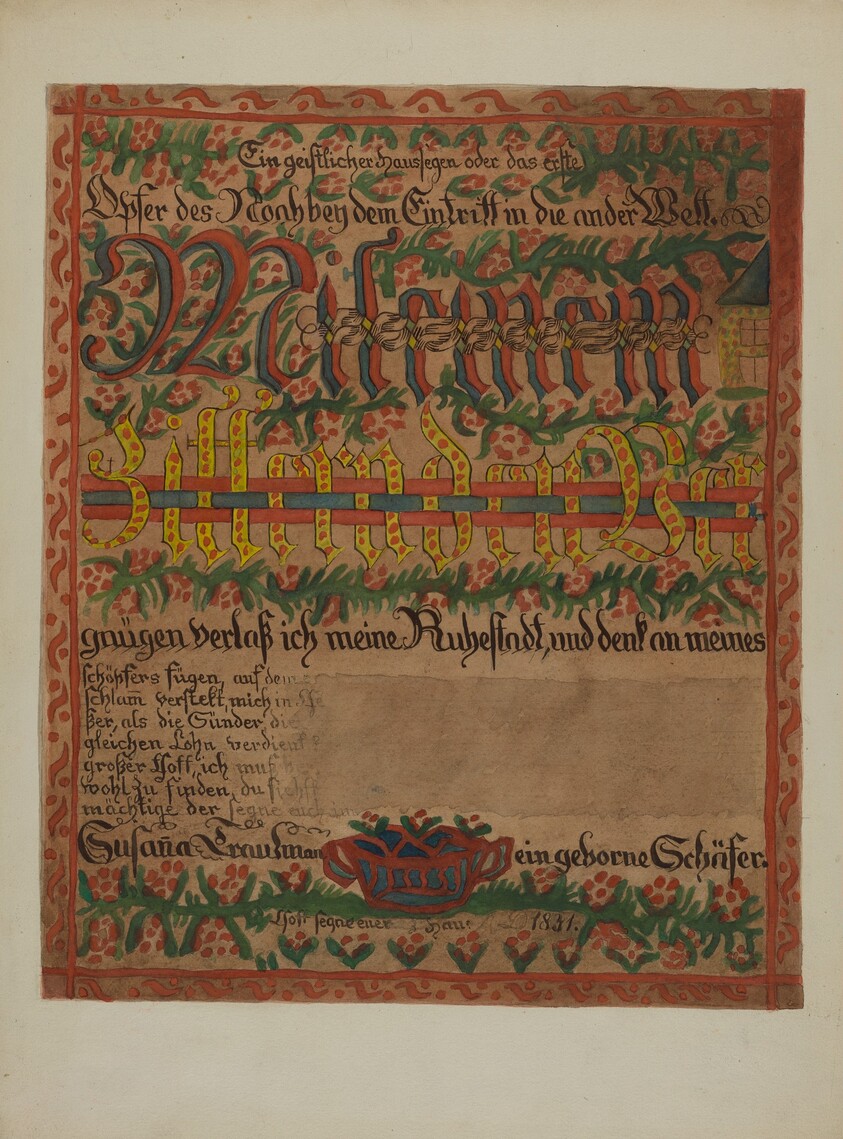 Ein geistlicher Haussegen oder das erste
Opfer des Noah bey dem Eintritt in die ander Welt.
Mit einem
Zitternden Ver
gnügen verlaß ich meine Ruhestadt, und denk an meines
schöpfers fügen, auf dem
schlam̅ versteckt, mich in
ßer, als die Sünder, die
gleichen Lohn verdient
großer Gott, ich muß
wohl zu finden, du siehst
mächtige der segne euch im
Susan̅a Trautman ein geborne Schäfer.
Gott segne euer Haus AD 1831.